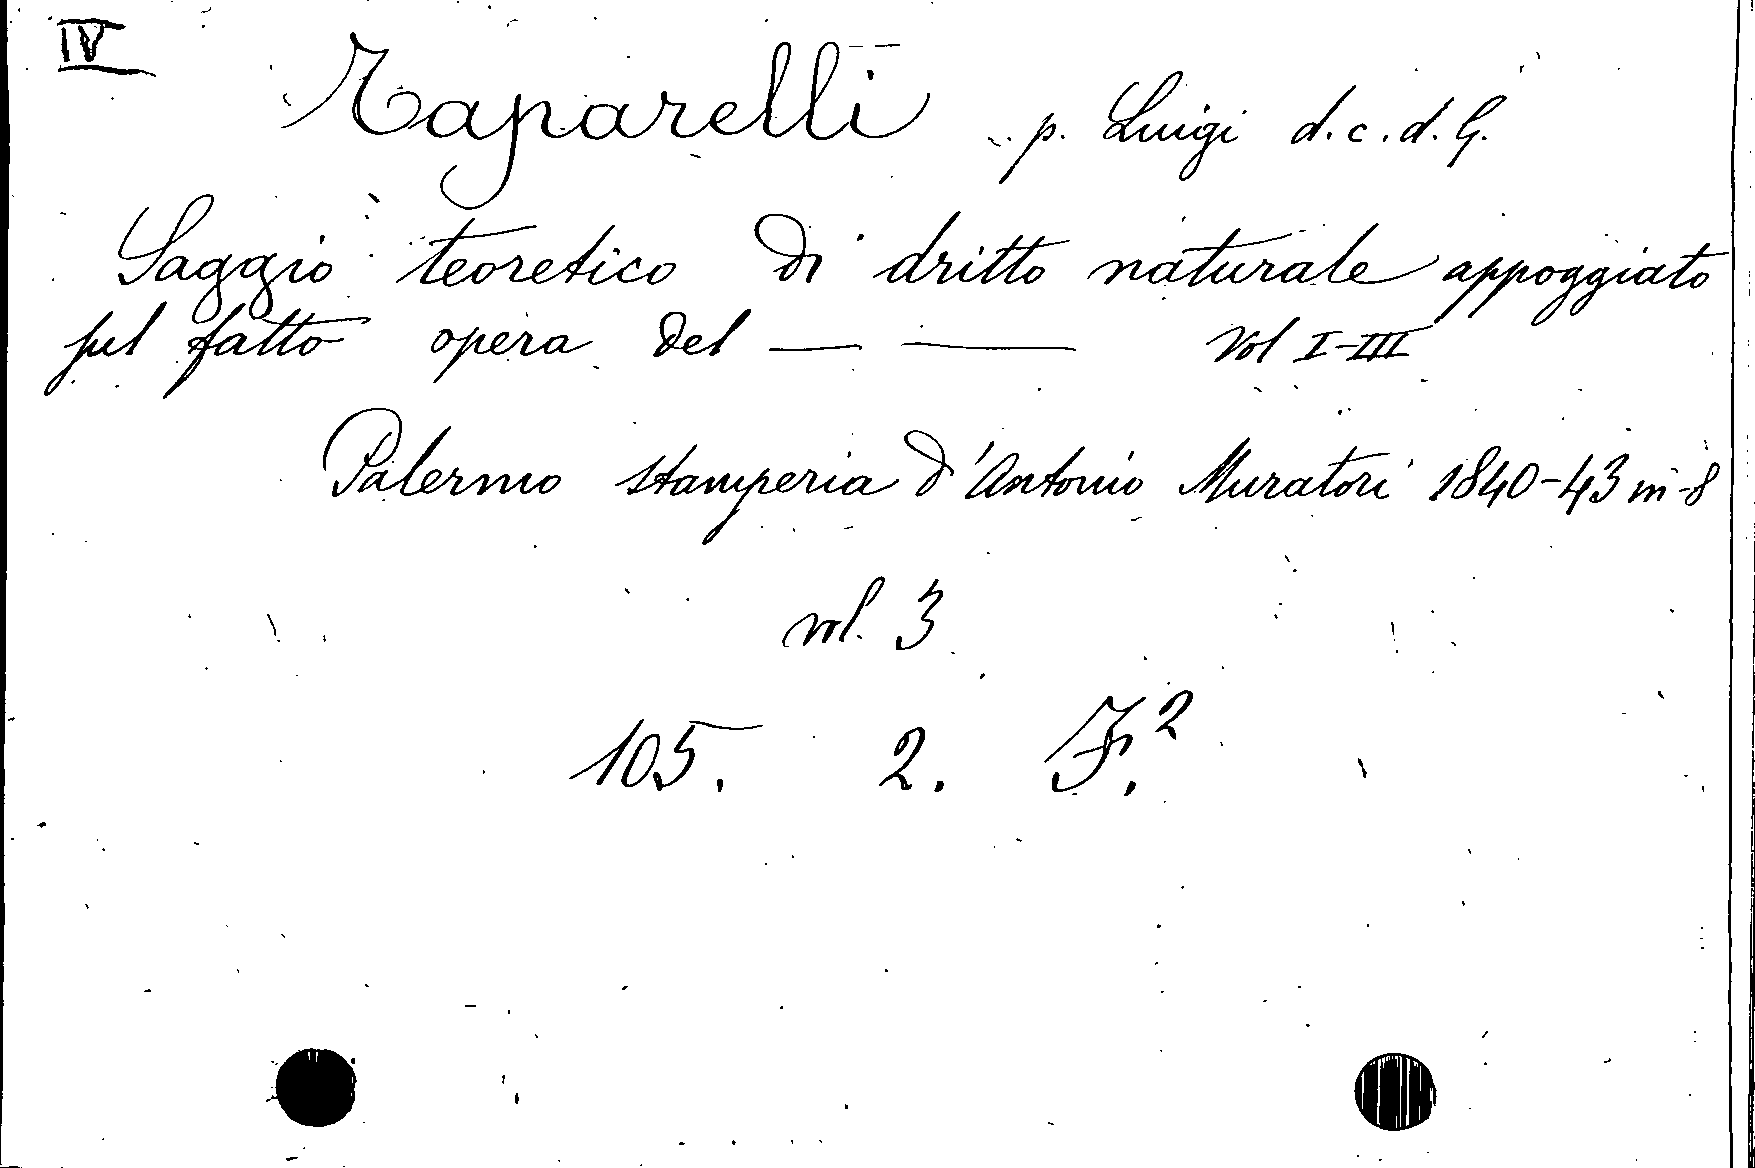 IV
Taparelli p. Luigi d.c.d.G.
Saggio teoretico di dritto naturale appoggiato
sul fatto opera del — — Vol I-III
Palermo stamperia d'Antonio Muratori 1840-43 in-8
vol. 3
105. 2. F.²